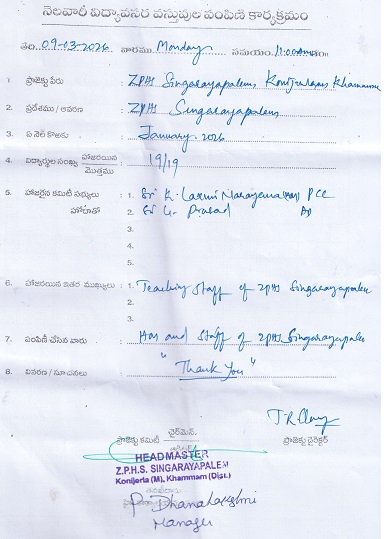 నెలవారీ విద్యావసర వస్తువుల పంపిణీ కార్యక్రమం
తేది. 09-03-2026 వారము Monday సమయం. 11:00
1. ప్రాజెక్టు పేరు : ZPHS Singarayapalem, Konijerla(m), Khammam
2. ప్రదేశము / ఆవరణ : ZPHS Singarayapalem
3. ఏ నెల కొఱకు : January. 2026
4. విద్యార్థుల సంఖ్య హాజరయిన / మొత్తము : 19/19
5. హాజరైన కమిటీ సభ్యులు : 1. Sri K. Laxmi Narayana PCC
హోదాతో 2. Sri G. Prasad AP
3.
4.
5.
6. హాజరయిన ఇతర ముఖ్యులు : 1. Teaching staff of ZPHS Singarayapalem
2.
3.
7. పంపిణీ చేసిన వారు : Hm and staff of ZPHS Singarayapalem
8. వివరణ / సూచనలు : "Thank You"
ఛైర్మెన్.
ప్రాజెక్టు కమిటీ
ప్రాజెక్టు డైరెక్టర్
HEADMASTER
Z.P.H.S. SINGARAYAPALEM
Konijerla (M), Khammam (Dist.)
P. Dhanalakshmi
Manager